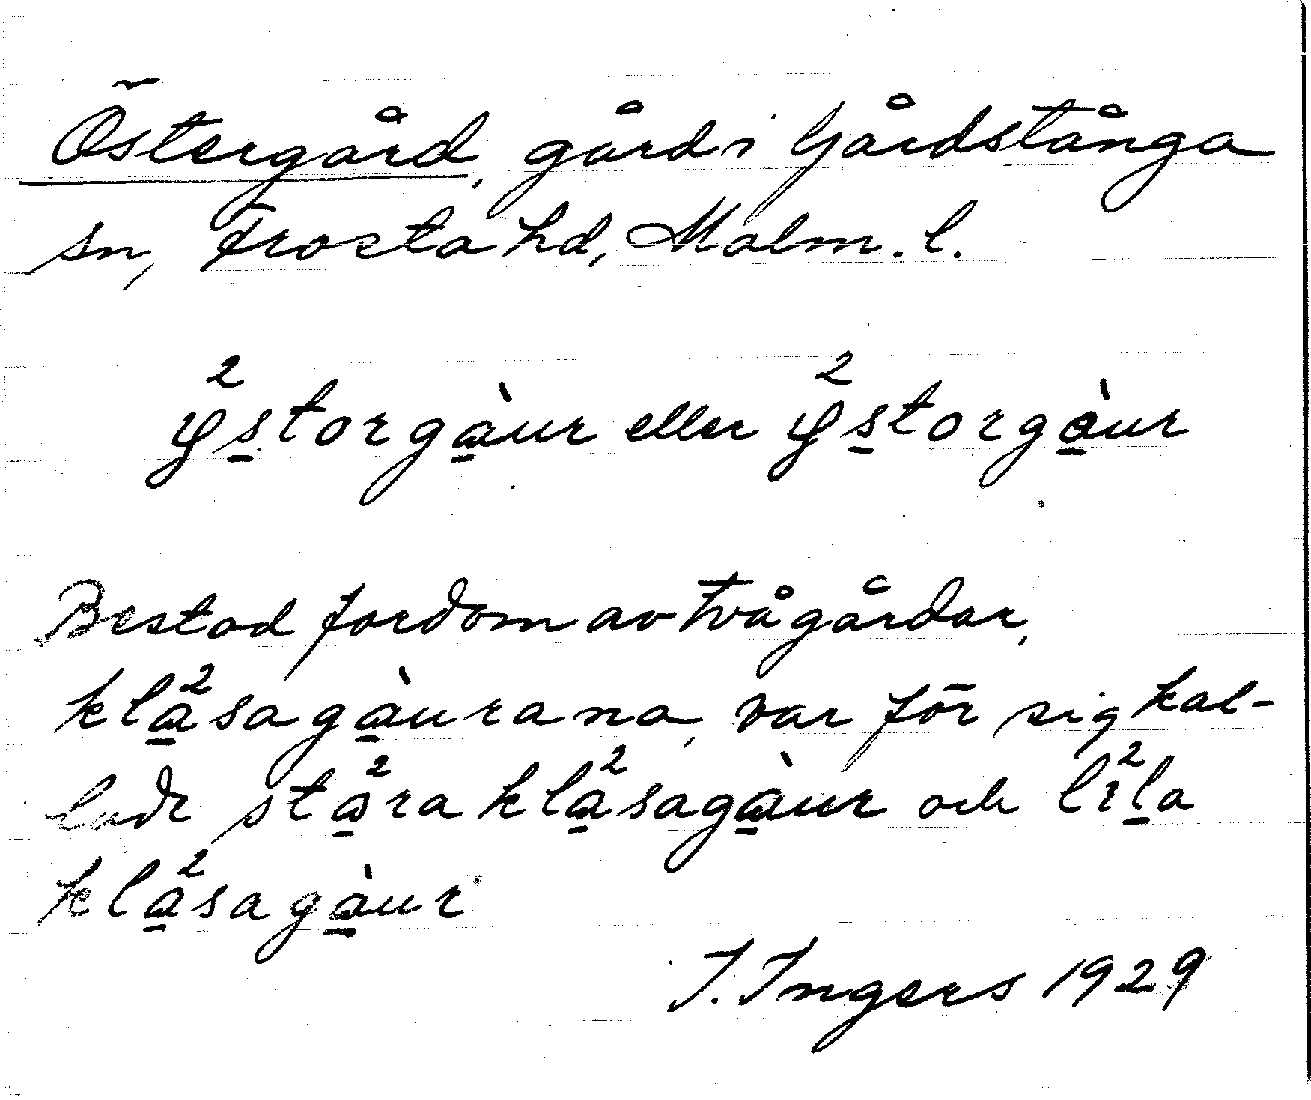 Östergård, gård i Gårdstånga
sn, Frosta hd, Malm. l.
y²storgàur eller y²storgàur
Bestod fordom av två gårdar,
kla²sagàurana, var för sig kal-
lade sta²ra kla²sagàur och li²la
kla²sagàur
I. Ingers 1929